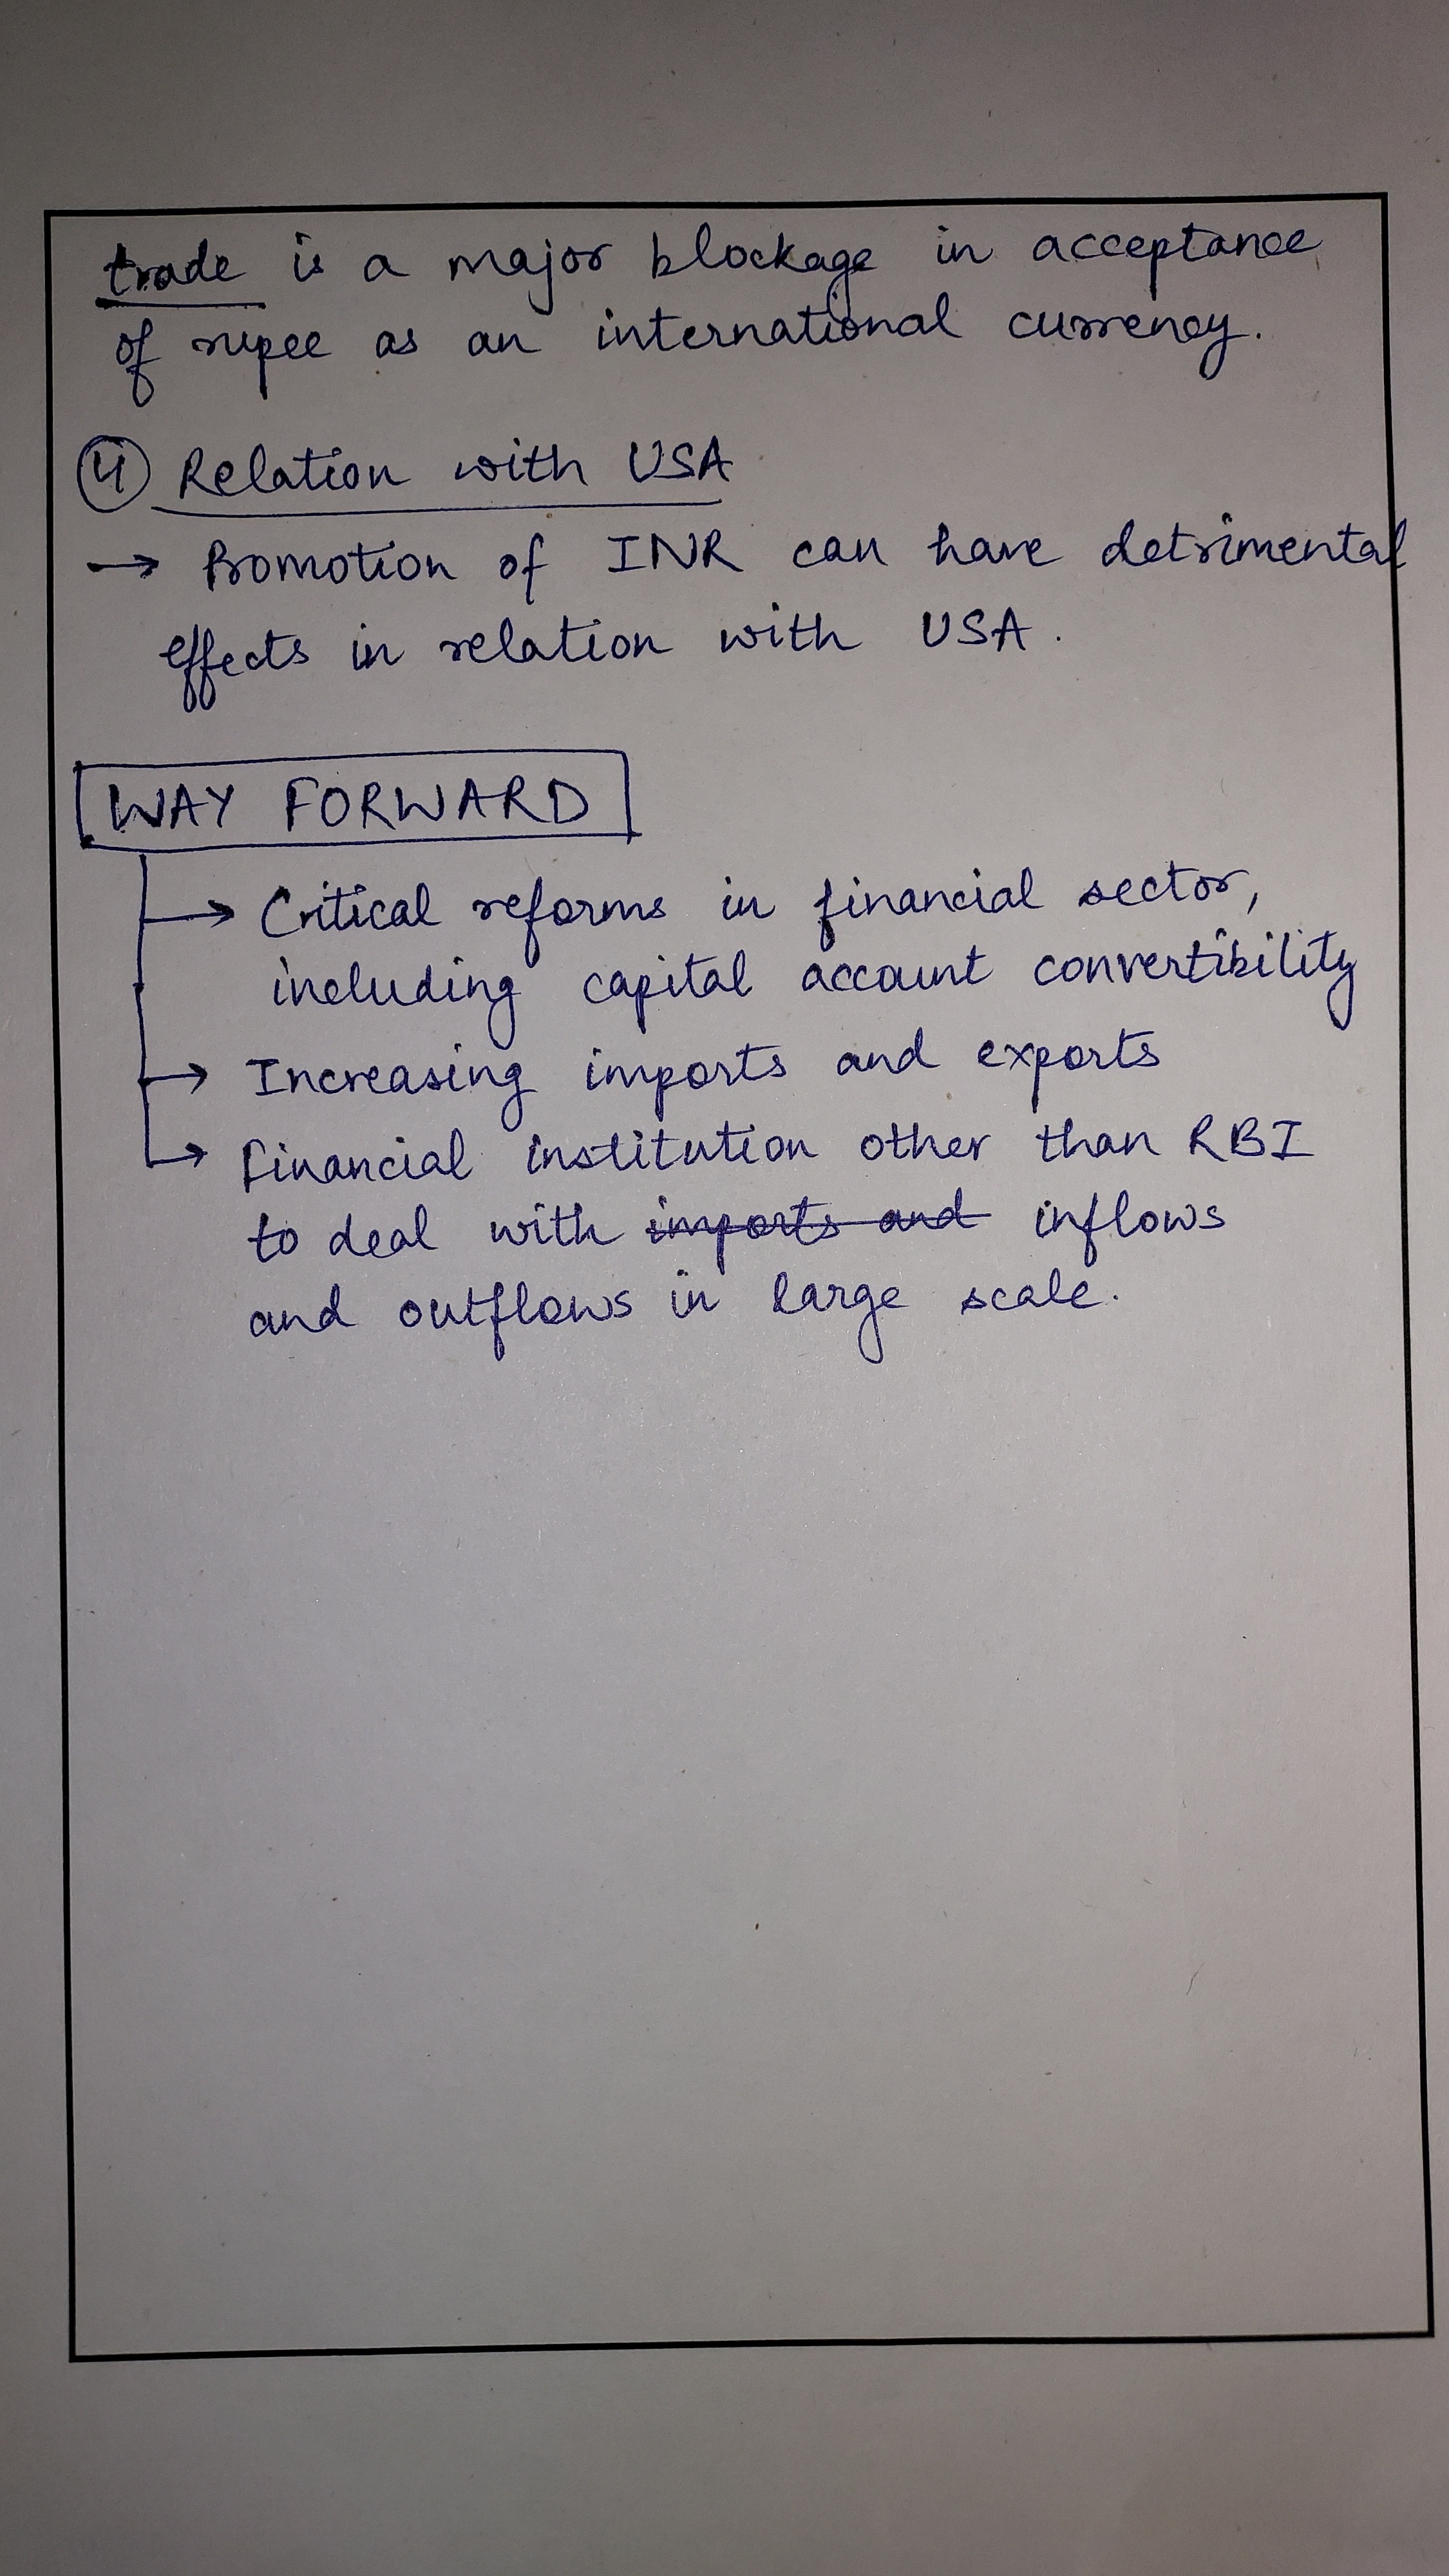 trade is a major blockage in acceptance
of rupee as an international currency.
④ Relation with USA
→ Promotion of INR can have detrimental
effects in relation with USA.
WAY FORWARD
→ Critical reforms in financial sector,
including capital account convertibility
→ Increasing imports and exports
→ Financial institution other than RBI
to deal with imports and inflows
and outflows in large scale.